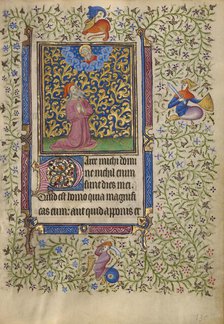 Parce michi domi
ne nichil enim
sunt dies mei.
Quid est homo quia magnifi
cas eum: aut quid apponis er